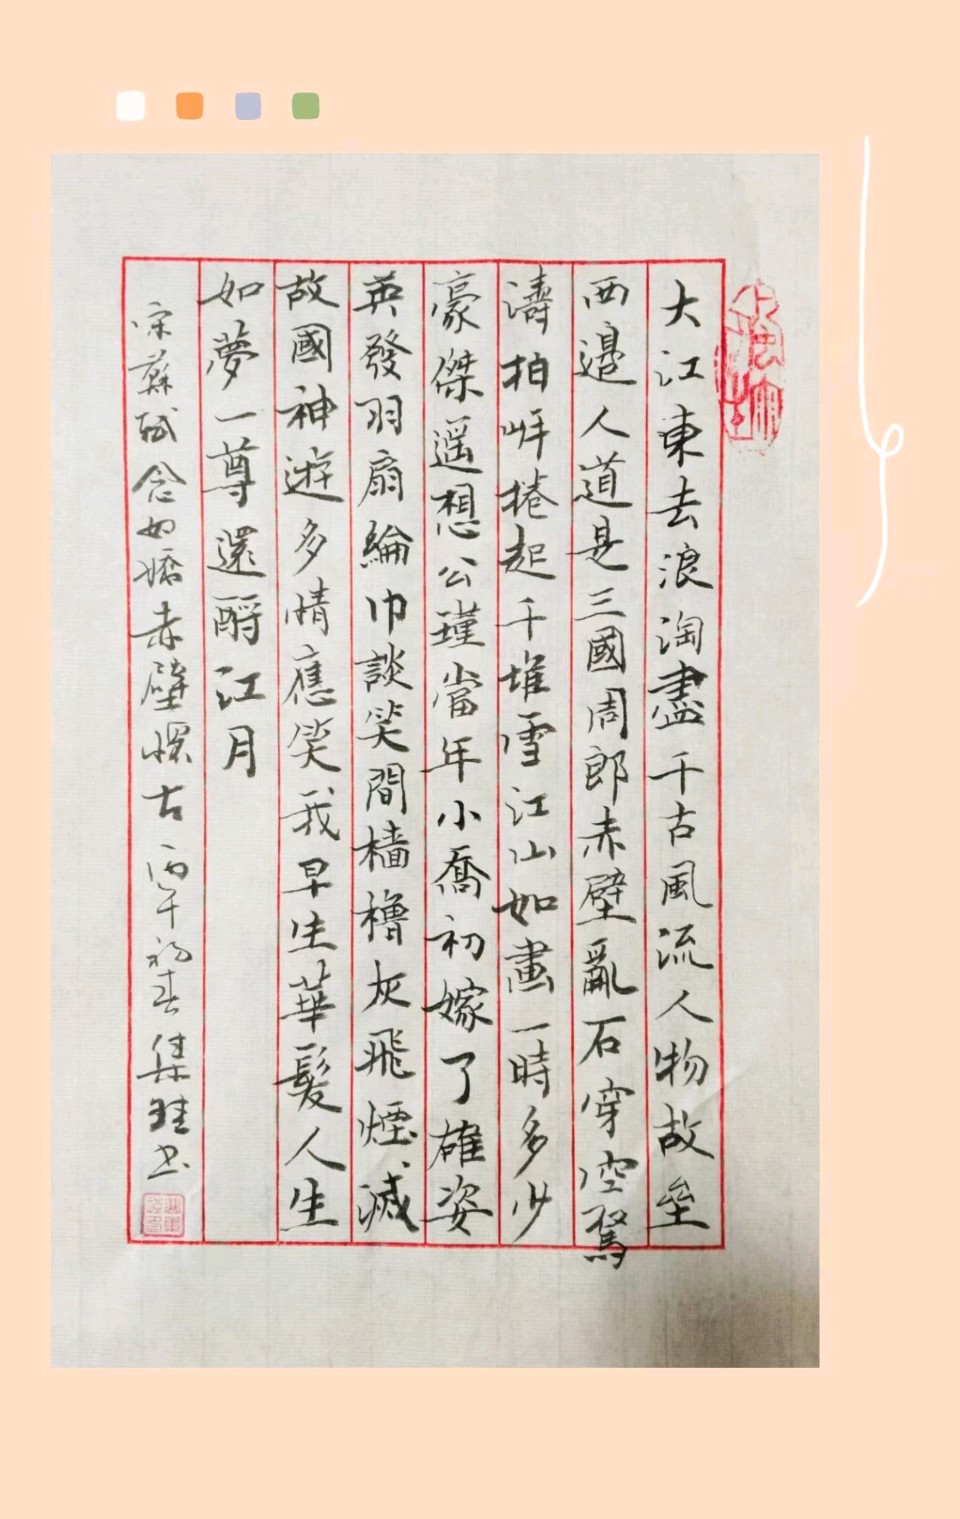 大江東去浪淘盡千古風流人物故壘
西邊人道是三國周郎赤壁亂石穿空驚
濤拍岸捲起千堆雪江山如畫一時多少
豪傑遥想公瑾當年小喬初嫁了雄姿
英發羽扇綸巾談笑間檣櫓灰飛煙滅
故國神遊多情應笑我早生華髮人生
如夢一尊還酹江月
宋蘇軾念奴嬌赤壁懷古丙午初春集珪書